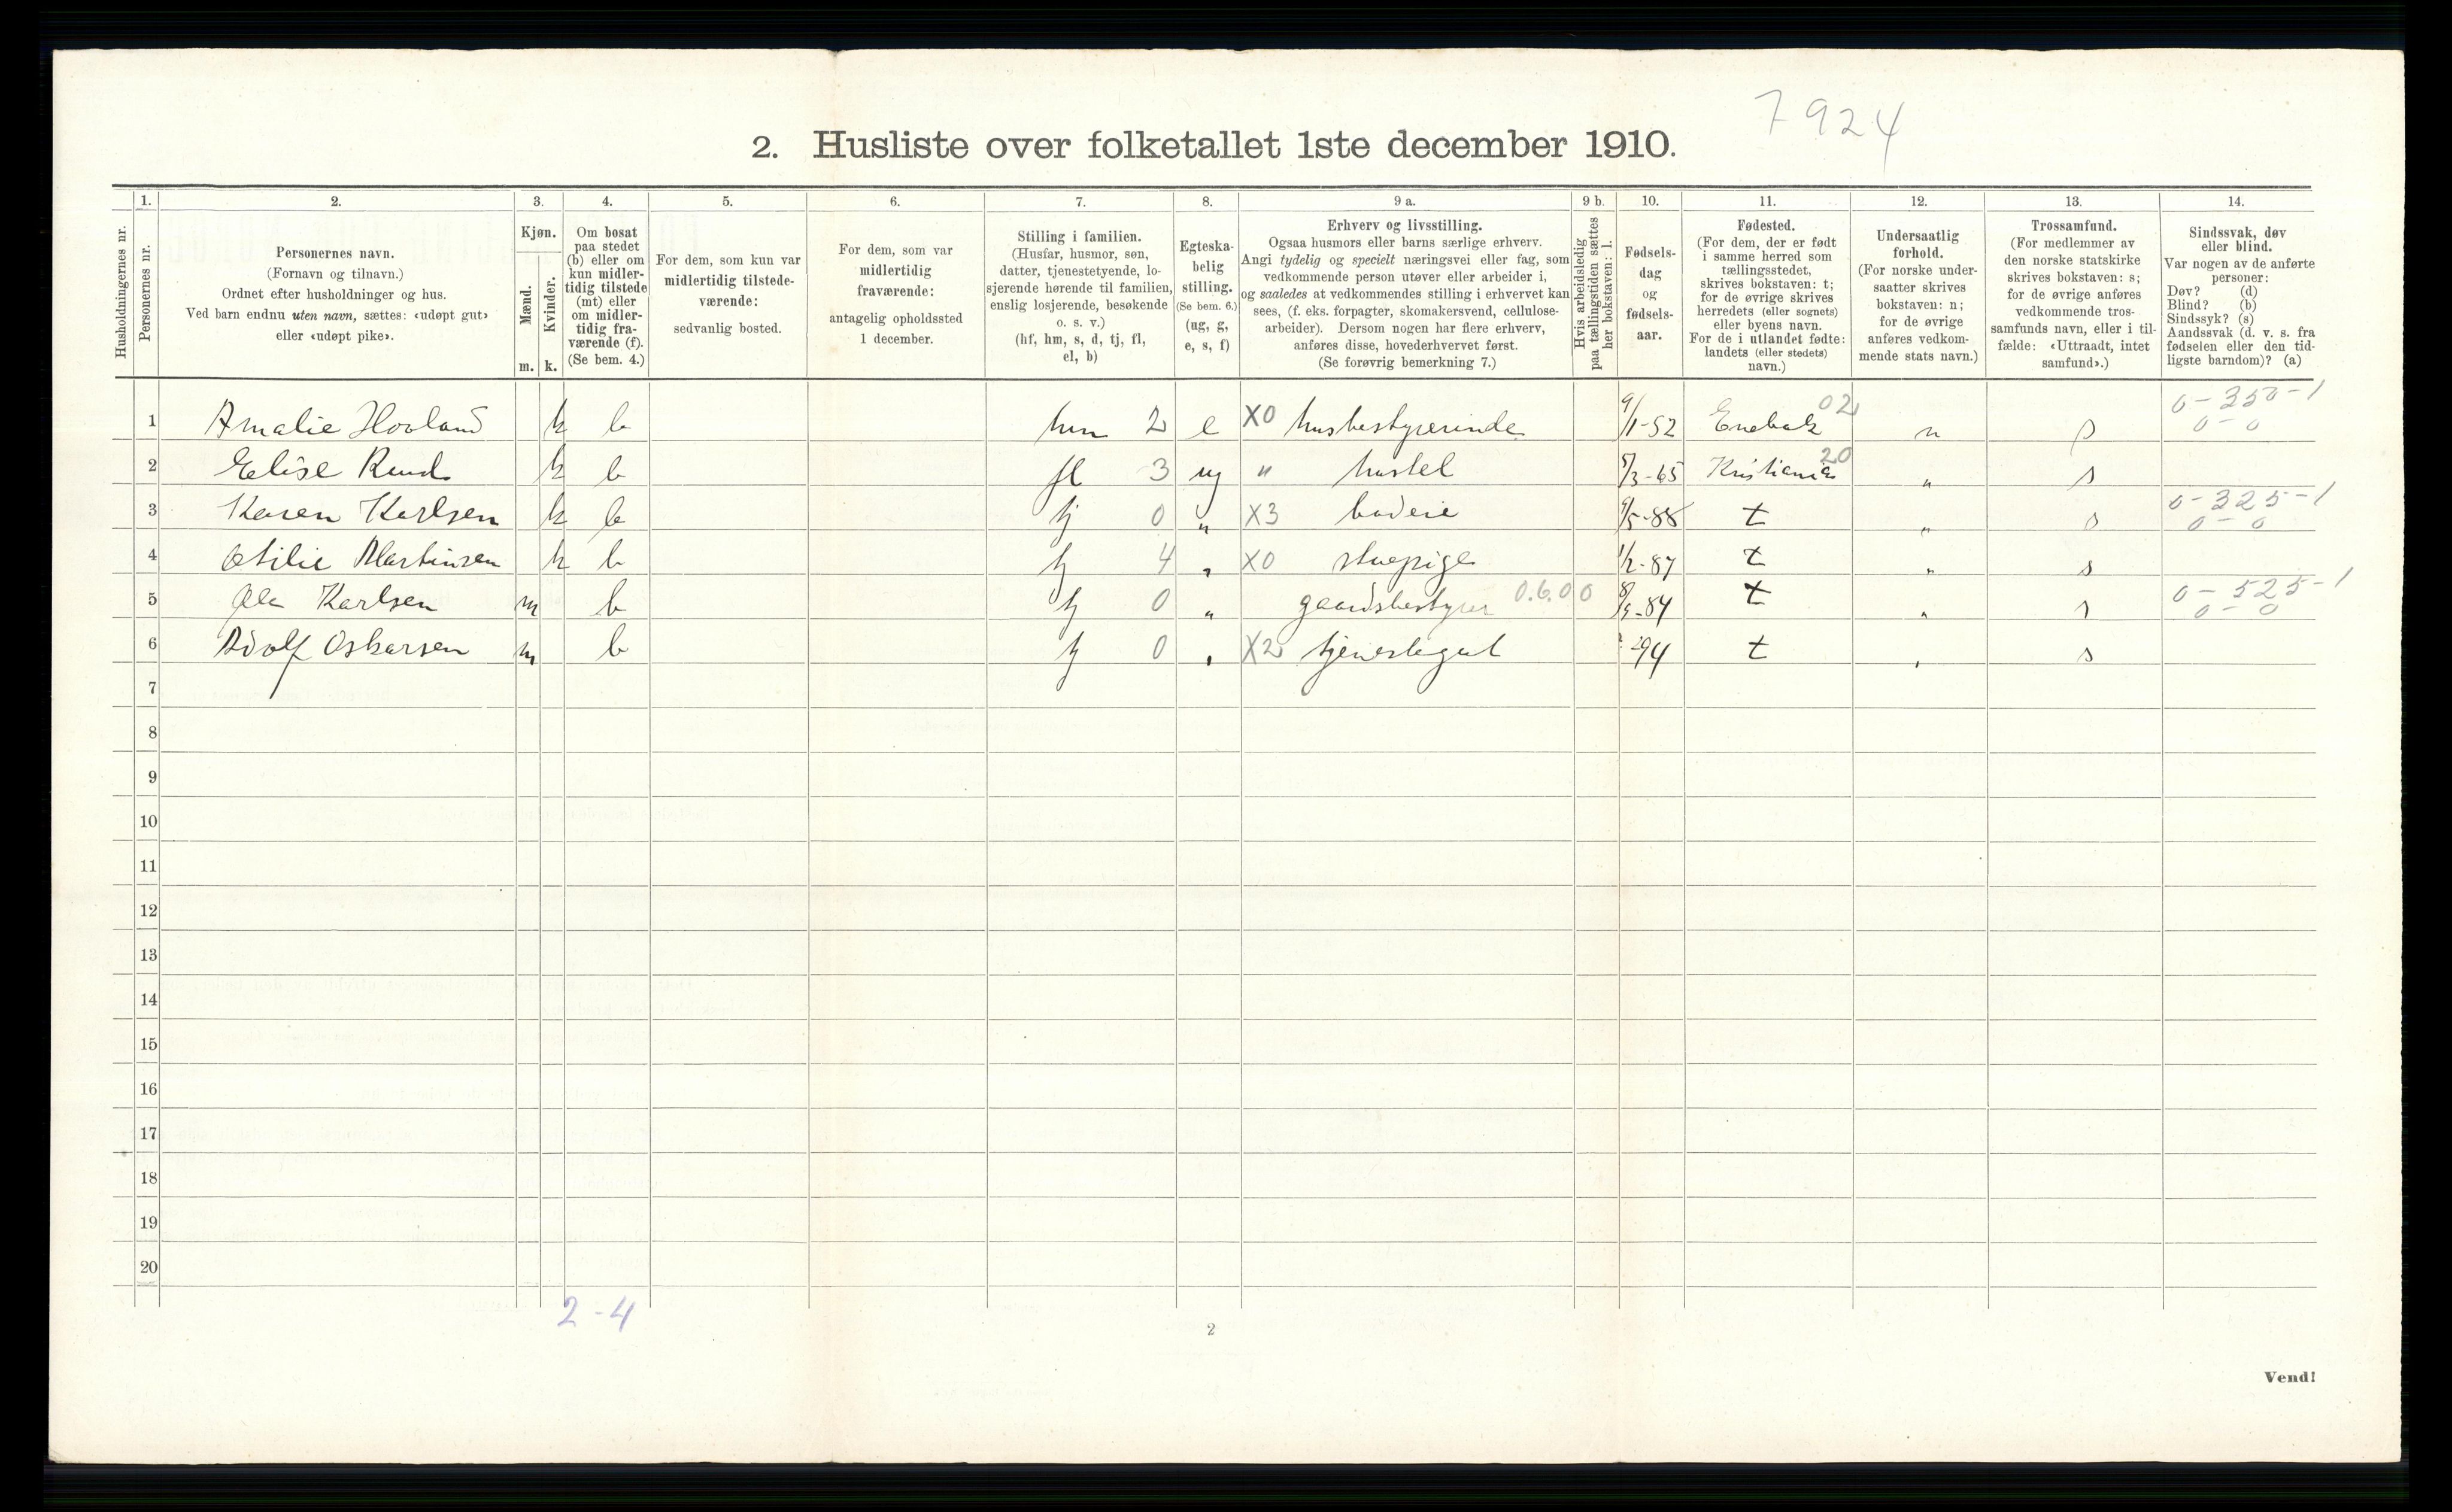 7924
2. Husliste over folketallet 1ste december 1910.
Husholdningernes nr.
1.
Personernes nr.
2.
Personernes navn.
(Fornavn og tilnavn.)
Ordnet efter husholdninger og hus.
Ved barn endnu uten navn, sættes: «udøpt gut»
eller «udøpt pike».
3.
Kjøn.
Mænd.
Kvinder.
m. k.
4.
Om bosat
paa stedet
(b) eller om
kun midler-
tidig tilstede
(mt) eller
om midler-
tidig fra-
værende (f).
(Se bem. 4.)
5.
For dem, som kun var
midlertidig tilstede-
værende:
sedvanlig bosted.
6.
For dem, som var
midlertidig
fraværende:
antagelig opholdssted
1 december.
7.
Stilling i familien.
(Husfar, husmor, søn,
datter, tjenestetyende, lo-
sjerende hørende til familien,
enslig losjerende, besøkende
o. s. v.)
(hf, hm, s, d, tj, fl,
el, b)
8.
Egteska-
belig
stilling.
(Se bem. 6.)
(ug, g,
e, s, f)
9 a.
Erhverv og livsstilling.
Ogsaa husmors eller barns særlige erhverv.
Angi tydelig og specielt næringsvei eller fag, som
vedkommende person utøver eller arbeider i,
og saaledes at vedkommendes stilling i erhvervet kan
sees, (f. eks. forpagter, skomakersvend, cellulose-
arbeider). Dersom nogen har flere erhverv,
anføres disse, hovederhvervet først.
(Se forøvrig bemerkning 7.)
9 b.
Hvis arbeidsledig
paa tællingstiden sættes
her bokstaven: l.
10.
Fødsels-
dag
og
fødsels-
aar.
11.
Fødested.
(For dem, der er født
i samme herred som
tællingsstedet,
skrives bokstaven: t;
for de øvrige skrives
herredets (eller sognets)
eller byens navn.
For de i utlandet fødte:
landets (eller stedets)
navn.)
12.
Undersaatlig
forhold.
(For norske under-
saatter skrives
bokstaven: n;
for de øvrige
anføres vedkom-
mende stats navn.)
13.
Trossamfund.
(For medlemmer av
den norske statskirke
skrives bokstaven: s;
for de øvrige anføres
vedkommende tros-
samfunds navn, eller i til-
fælde: «Uttraadt, intet
samfund».)
14.
Sindssvak, døv
eller blind.
Var nogen av de anførte
personer:
Døv? (d)
Blind? (b)
Sindssyk? (s)
Aandssvak (d. v. s. fra
fødselen eller den tid-
ligste barndom)? (a)
1 Amalie Hovland k b hm 2 e X0 husbestyrerinde 9/1-52 Enebak 02 n s 0-350-1 0-0
2 Elise Ruud k b fl 3 ug " hustel 5/3-65 Kristiania 20 " s
3 Karen Karlsen k b tj 0 " X3 budeie 9/5-88 t " s 0-325-1 0-0
4 Otilie Martinsen k b tj 4 " X0 stuepige 1/2-87 t " s
5 Ole Karlsen m b tj 0 " gaardsbestyrer 0.6.00 8/9-84 t " s 0-525-1 0-0
6 Adolf Oskarsen m b tj 0 " X2 tjenestegut -94 t " s
7
8
9
10
11
12
13
14
15
16
17
18
19
20
2-4
2
Vend!